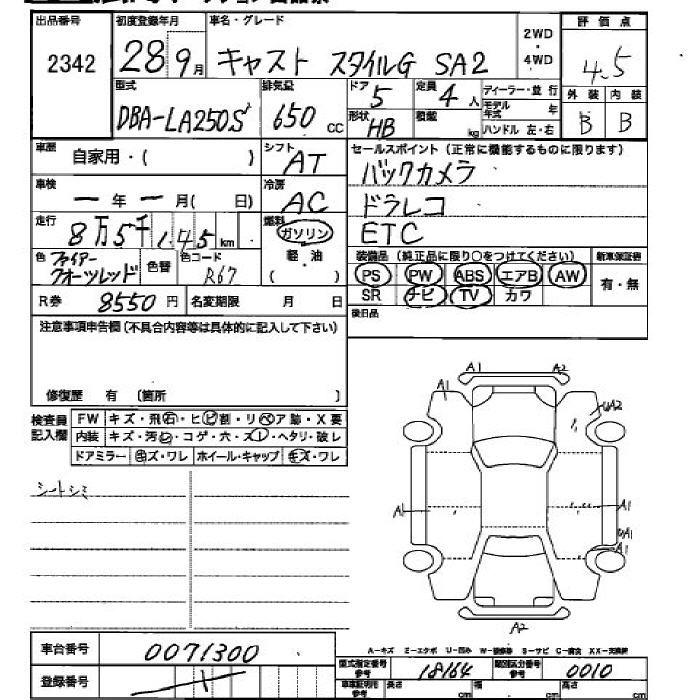 出品番号 初度登録年月 車名・グレード 2WD・4WD 評価点
2342 28 9月 キャスト スタイルG SA2 4.5
型式 排気量 ドア 定員 ディーラー・並行 外装 内装
DBA-LA250S 650 cc 5 4人 モデル年式 年 B B
形状 HB 積載 kg ハンドル 左・右
車歴 自家用・( ) シフト AT セールスポイント (正常に機能するものに限ります)
車検 ー年ー月( 日) 冷房 AC バックカメラ
ドラレコ
走行 8万5千145km 燃料 ガソリン ETC
色 ファイアークォーツレッド 色替 色コード R67 軽油 ( )
装備品 (純正品に限り○をつけてください) 新車保証書
PS PW ABS エアB AW 有・無
SR ナビ TV カワ
R券 8550円 名変期限 月 日 後日品
注意事項申告欄(不具合内容等は具体的に記入して下さい)
修復歴 有 [箇所 ]
検査員記入欄 FW キズ・飛石・ヒビ割・リペア跡・X要
内装 キズ・汚れ・コゲ・穴・スレ・ヘタリ・破レ
ドアミラー キズ・ワレ ホイール・キャップ キズ・ワレ
シートシミ
A1 A2
A1 UA2
A1 A1
UA1
A1
A2
A-キズ E-エクボ U-凹み W-補修跡 S-サビ C-腐食 XX-交換済
車台番号 0071300
登録番号
型式指定番号 参考 18164 類別区分番号 参考 0010
車車証明用 参考 長さ cm 幅 cm 高さ cm